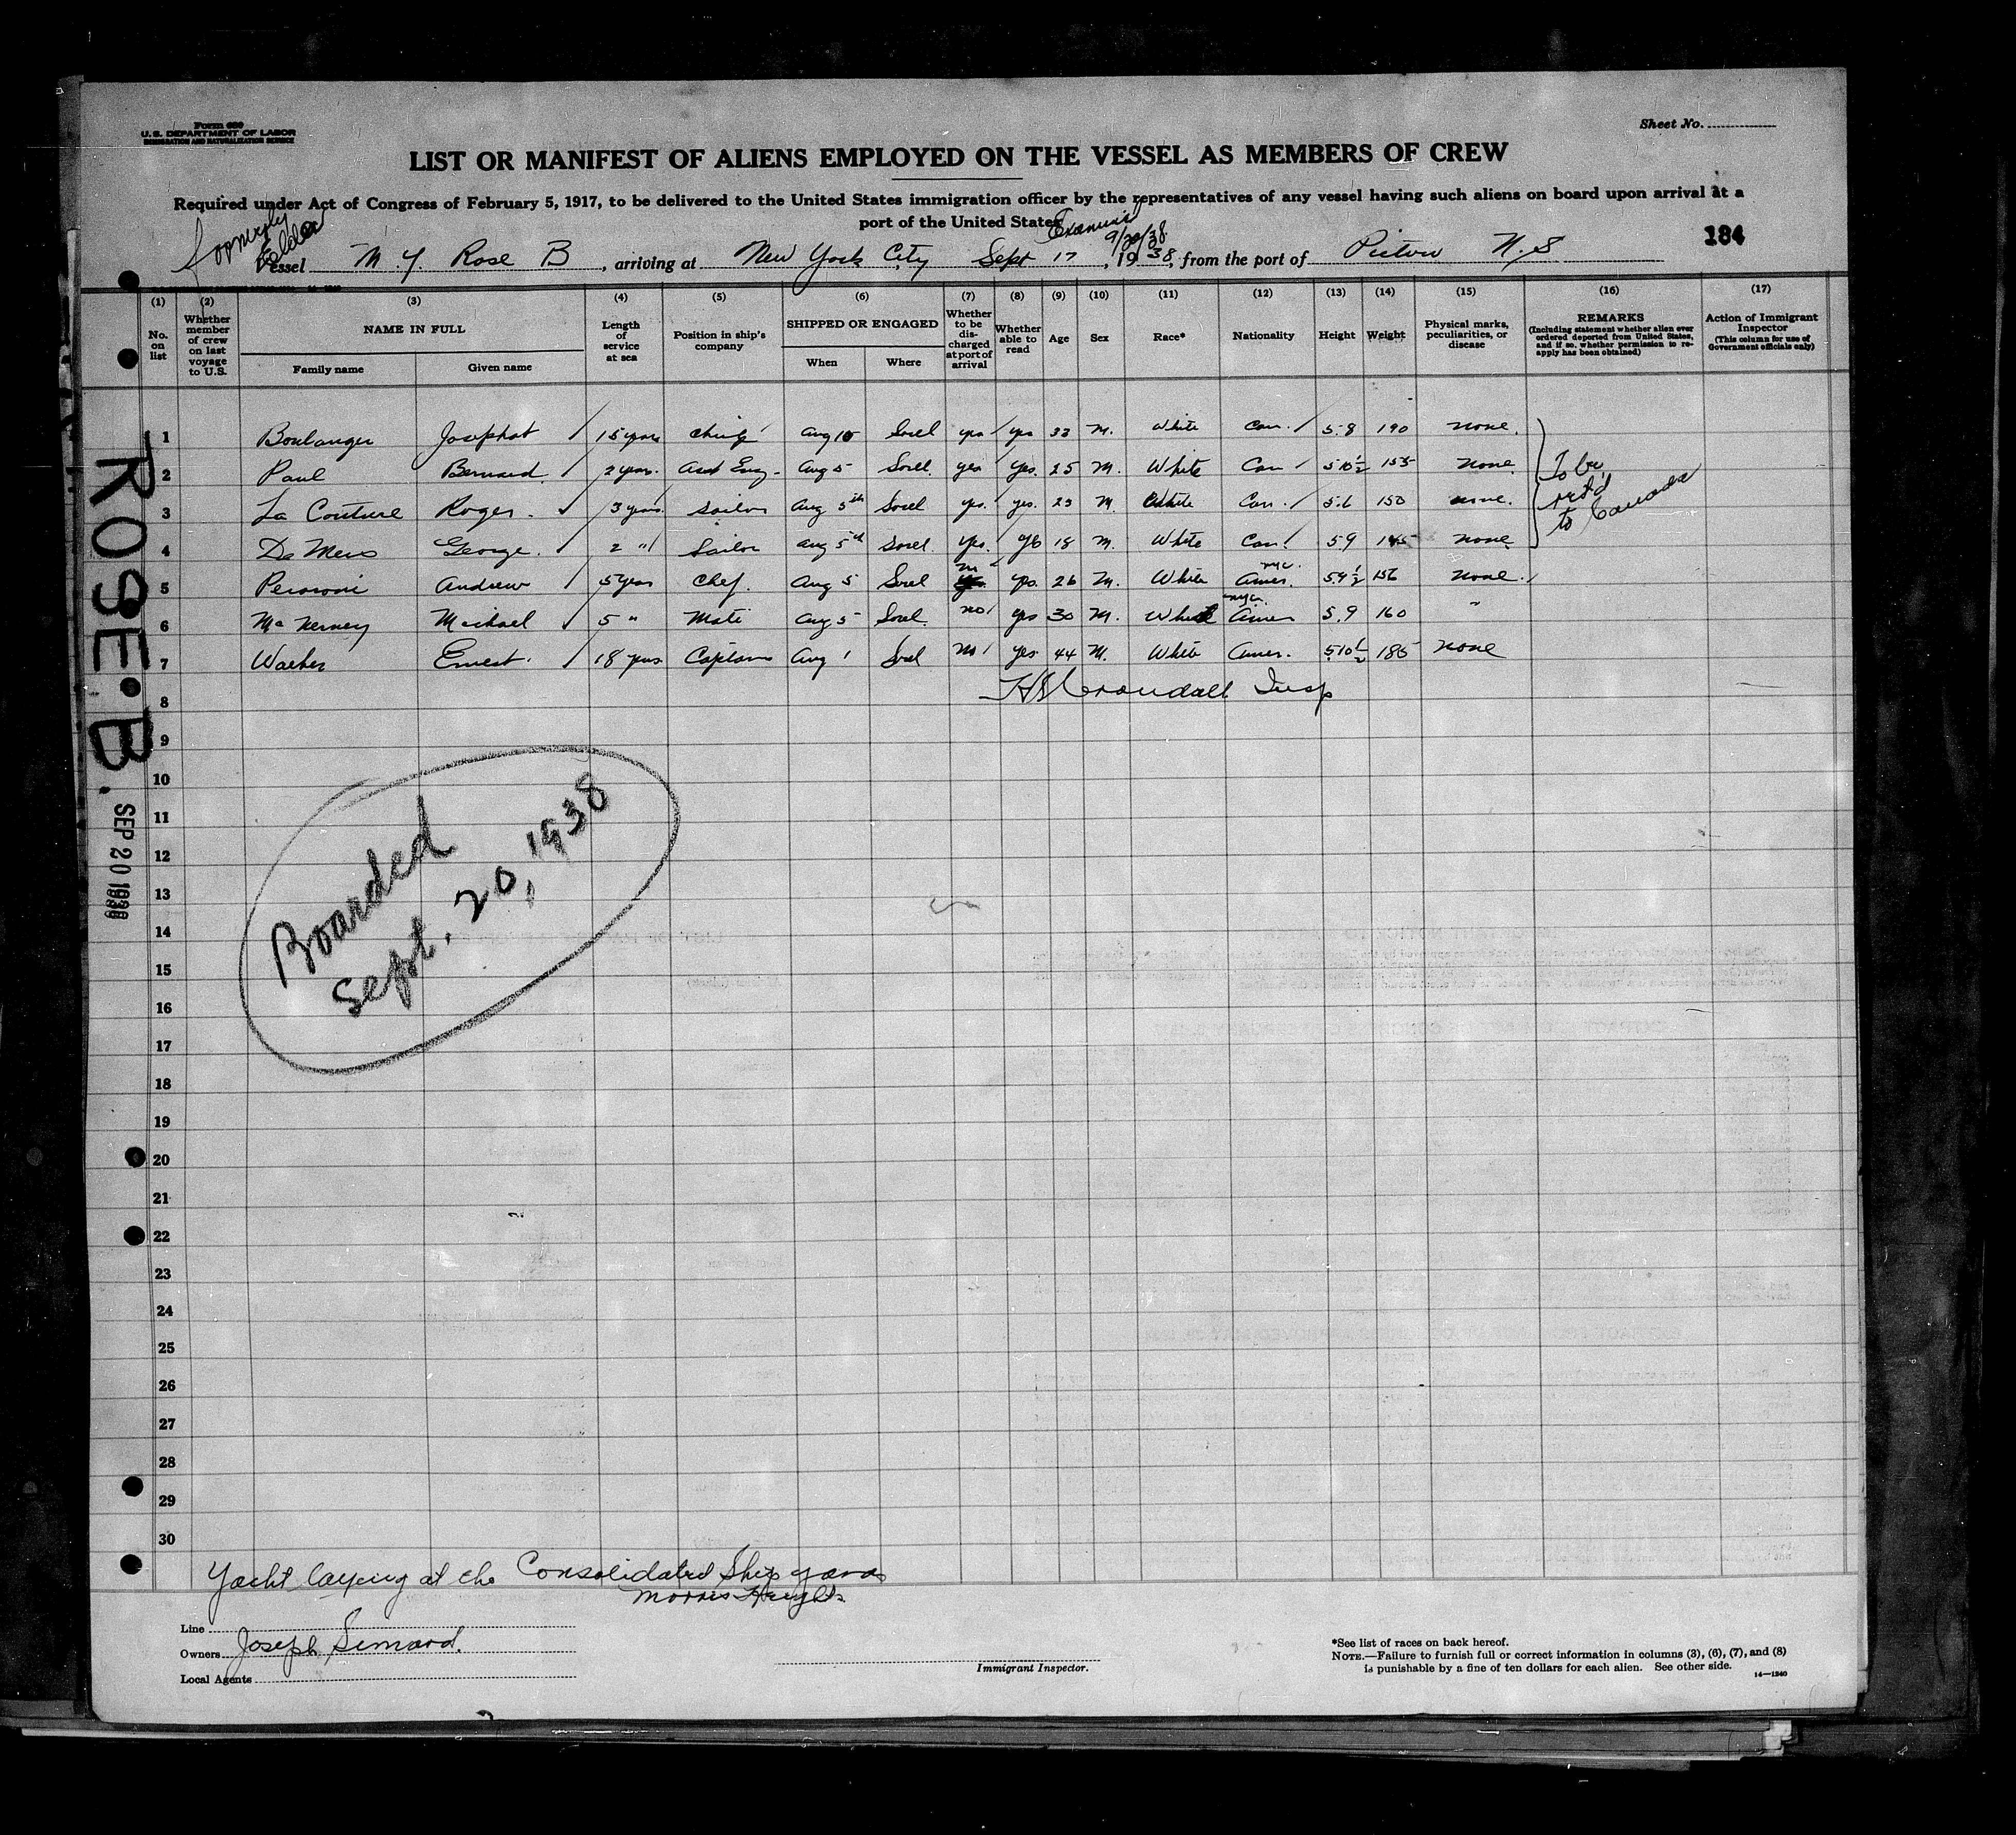 Form 680
U. S. DEPARTMENT OF LABOR
IMMIGRATION AND NATURALIZATION SERVICE
Sheet No.
LIST OR MANIFEST OF ALIENS EMPLOYED ON THE VESSEL AS MEMBERS OF CREW
Required under Act of Congress of February 5, 1917, to be delivered to the United States immigration officer by the representatives of any vessel having such aliens on board upon arrival at a
port of the United States
formerly
Examined 9/20/38
184
Vessel M. Y. Rose B, arriving at New York City Sept 17, 1938, from the port of Pictou N. S
(1) (2) (3) (4) (5) (6) (7) (8) (9) (10) (11) (12) (13) (14) (15) (16) (17)
No. on list
Whether member of crew on last voyage to U.S.
NAME IN FULL
Family name
Given name
Length of service at sea
Position in ship's company
SHIPPED OR ENGAGED
When
Where
Whether to be discharged at port of arrival
Whether able to read
Age
Sex
Race*
Nationality
Height
Weight
Physical marks, peculiarities, or disease
REMARKS
(Including statement whether alien ever ordered deported from United States, and if so, whether permission to reapply has been obtained)
Action of Immigrant Inspector
(This column for use of Government officials only)
1 Boulanger Josephat 15 years chief Aug 10 Sorel yes yes 33 M. White Can. 5.8 190 none.
2 Paul Bernard 2 years. Asst Eng. Aug 5 Sorel. yes yes. 25 M. White Can 5 10½ 155 none
3 La Couture Roger. 3 years sailor Aug 5th Sorel yes. yes. 23 M. White Can. 5.6 150 none.
4 De Mers George. 2 " Sailor Aug 5th Sorel. yes. yes 18 M. White Can. 5.9 145 none.
To be retd to Canada
5 Andrew 5 year Chef. Aug 5 Sorel yes. 26 M. White Amer. nyc. 5.9½ 156 none.
6 McNerney Michael 5 " Mate Aug 5 Sorel. no yes 30 M. White Amer nyc. 5.9 160 "
7 Waeber Ernest. 18 yrs Captain Aug 1 Sorel yes 44 M. White Amer. 5 10½ 185 none
Crandall Insp
8
9
10
11
12
13
14
15
16
17
18
19
20
21
22
23
24
25
26
27
28
29
30
ROSE. B.
SEP 20 1938
Boarded
Sept. 20, 1938
Yacht laying at the Consolidated Ship yards
Morris Heights
Line
Owners Joseph Simard.
Local Agents
Immigrant Inspector.
*See list of races on back hereof.
NOTE.—Failure to furnish full or correct information in columns (3), (6), (7), and (8)
is punishable by a fine of ten dollars for each alien. See other side. 14—1240